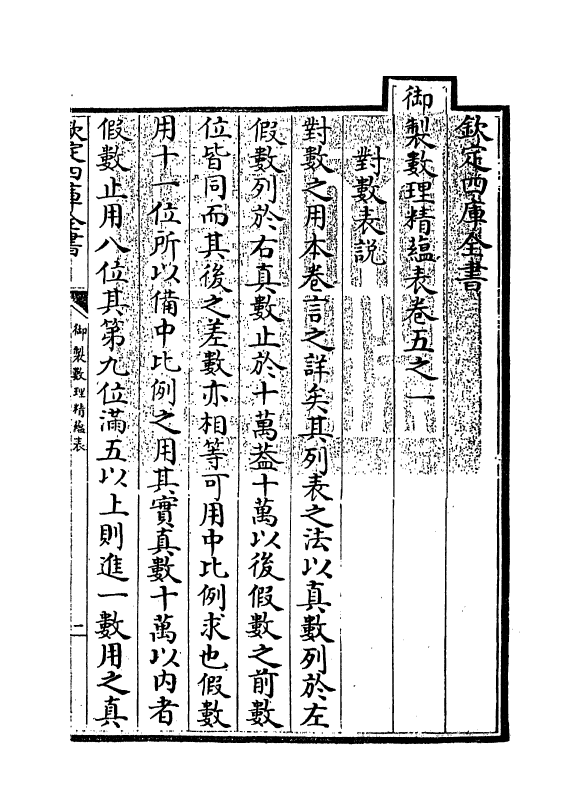 欽定四庫全書
御製數理精蘊表卷五之一
對數表説
對數之用本卷言之詳矣其列表之法以真數列於左
假數列於右真數止於十萬葢十萬以後假數之前數
位皆同而其後之差數亦相等可用中比例求也假數
用十一位所以備中比例之用其實真數十萬以内者
假數止用八位其第九位滿五以上則進一數用之真
欽定四庫全書
御製數理精蘊表